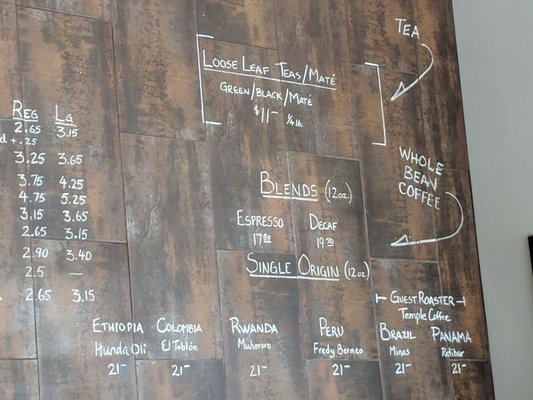 TEA
LOOSE LEAF TEAS/MATÉ
GREEN/BLACK/MATÉ
$11- 1/4 lb.
REG LG
2.65 3.15
d + .25
3.25 3.65
3.75 4.25
4.75 5.25
3.15 3.65
2.65 3.15
2.90 3.40
2.5 —
2.65 3.15
WHOLE
BEAN
COFFEE
BLENDS (12oz.)
ESPRESSO DECAF
SINGLE ORIGIN (12oz)
GUEST ROASTER
Temple Coffee
ETHIOPIA COLOMBIA RWANDA PERU BRAZIL PANAMA
Hunda Oli El Tablón Muhororo Fredy Bermeo Minas
21- 21- 21- 21- 21- 21-